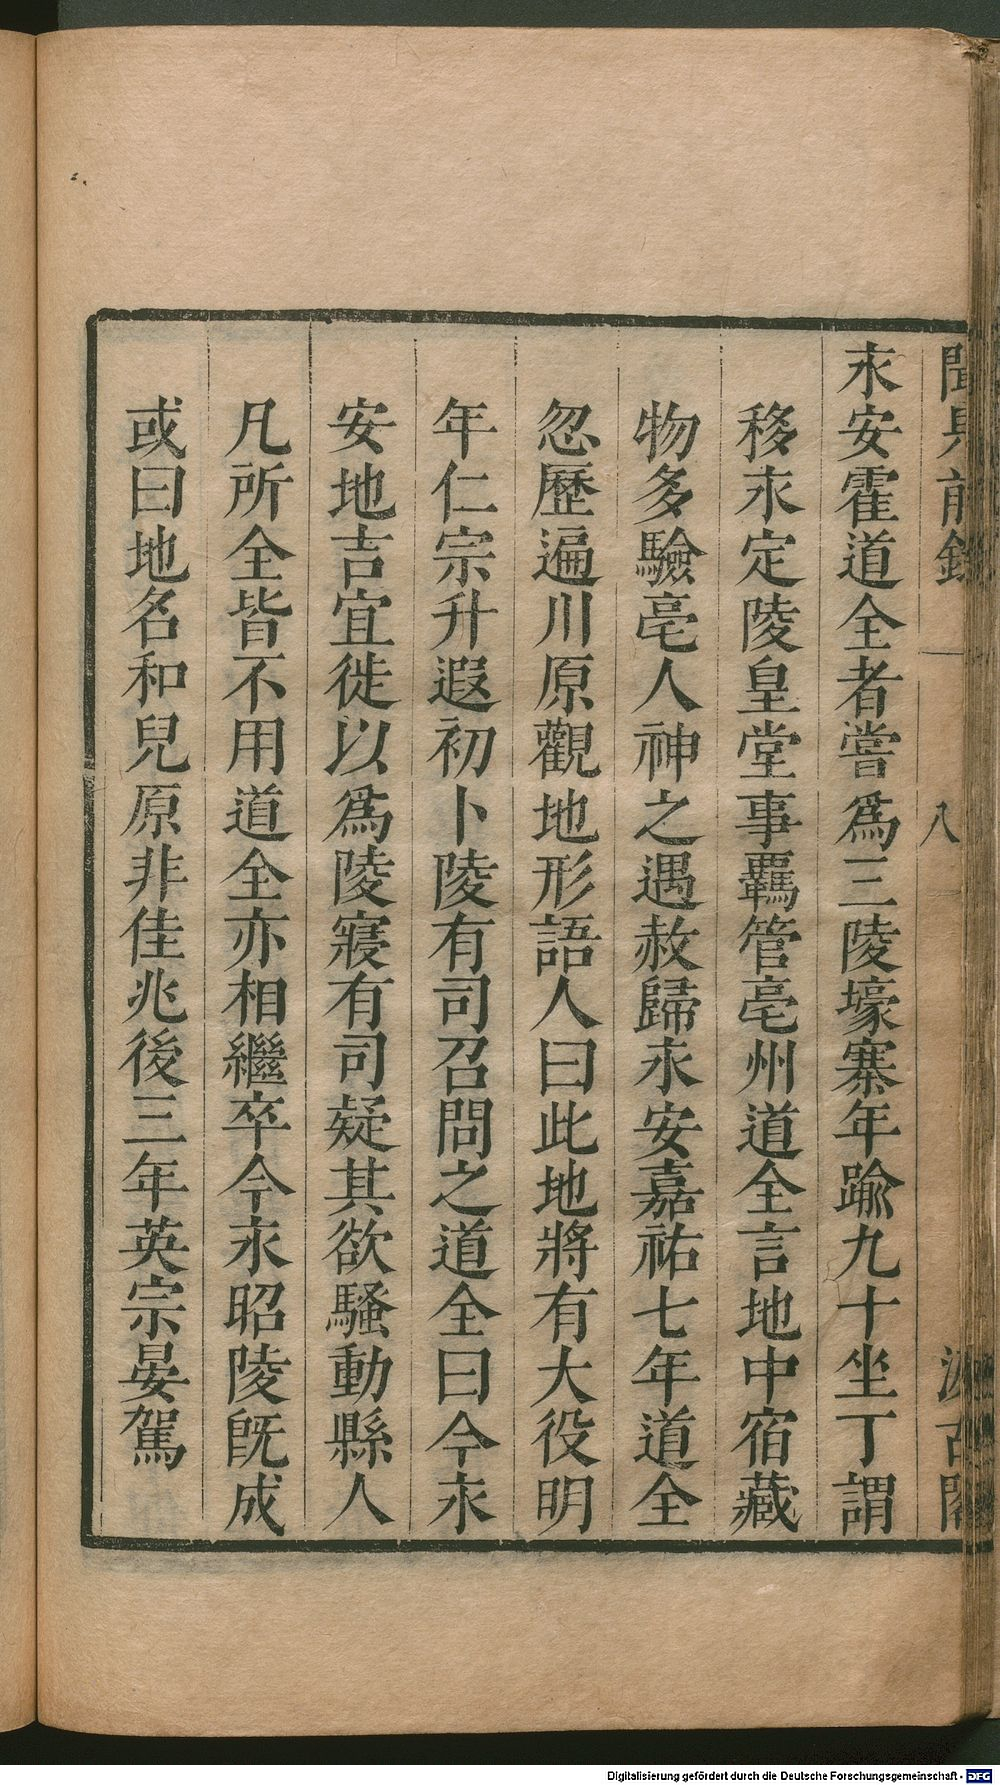 聞見前錄
八
汲古閣
永安霍道全者嘗爲三陵壕寨年踰九十坐丁謂
移永定陵皇堂事羈管亳州道全言地中宿藏
物多驗亳人神之遇赦歸永安嘉祐七年道全
忽歷遍川原觀地形語人曰此地將有大役明
年仁宗升遐初卜陵有司召問之道全曰今永
安地吉宜徙以爲陵寢有司疑其欲騷動縣人
凡所全皆不用道全亦相繼卒今永昭陵旣成
或曰地名和兒原非佳兆後三年英宗晏駕
Digitalisierung gefördert durch die Deutsche Forschungsgemeinschaft - DFG